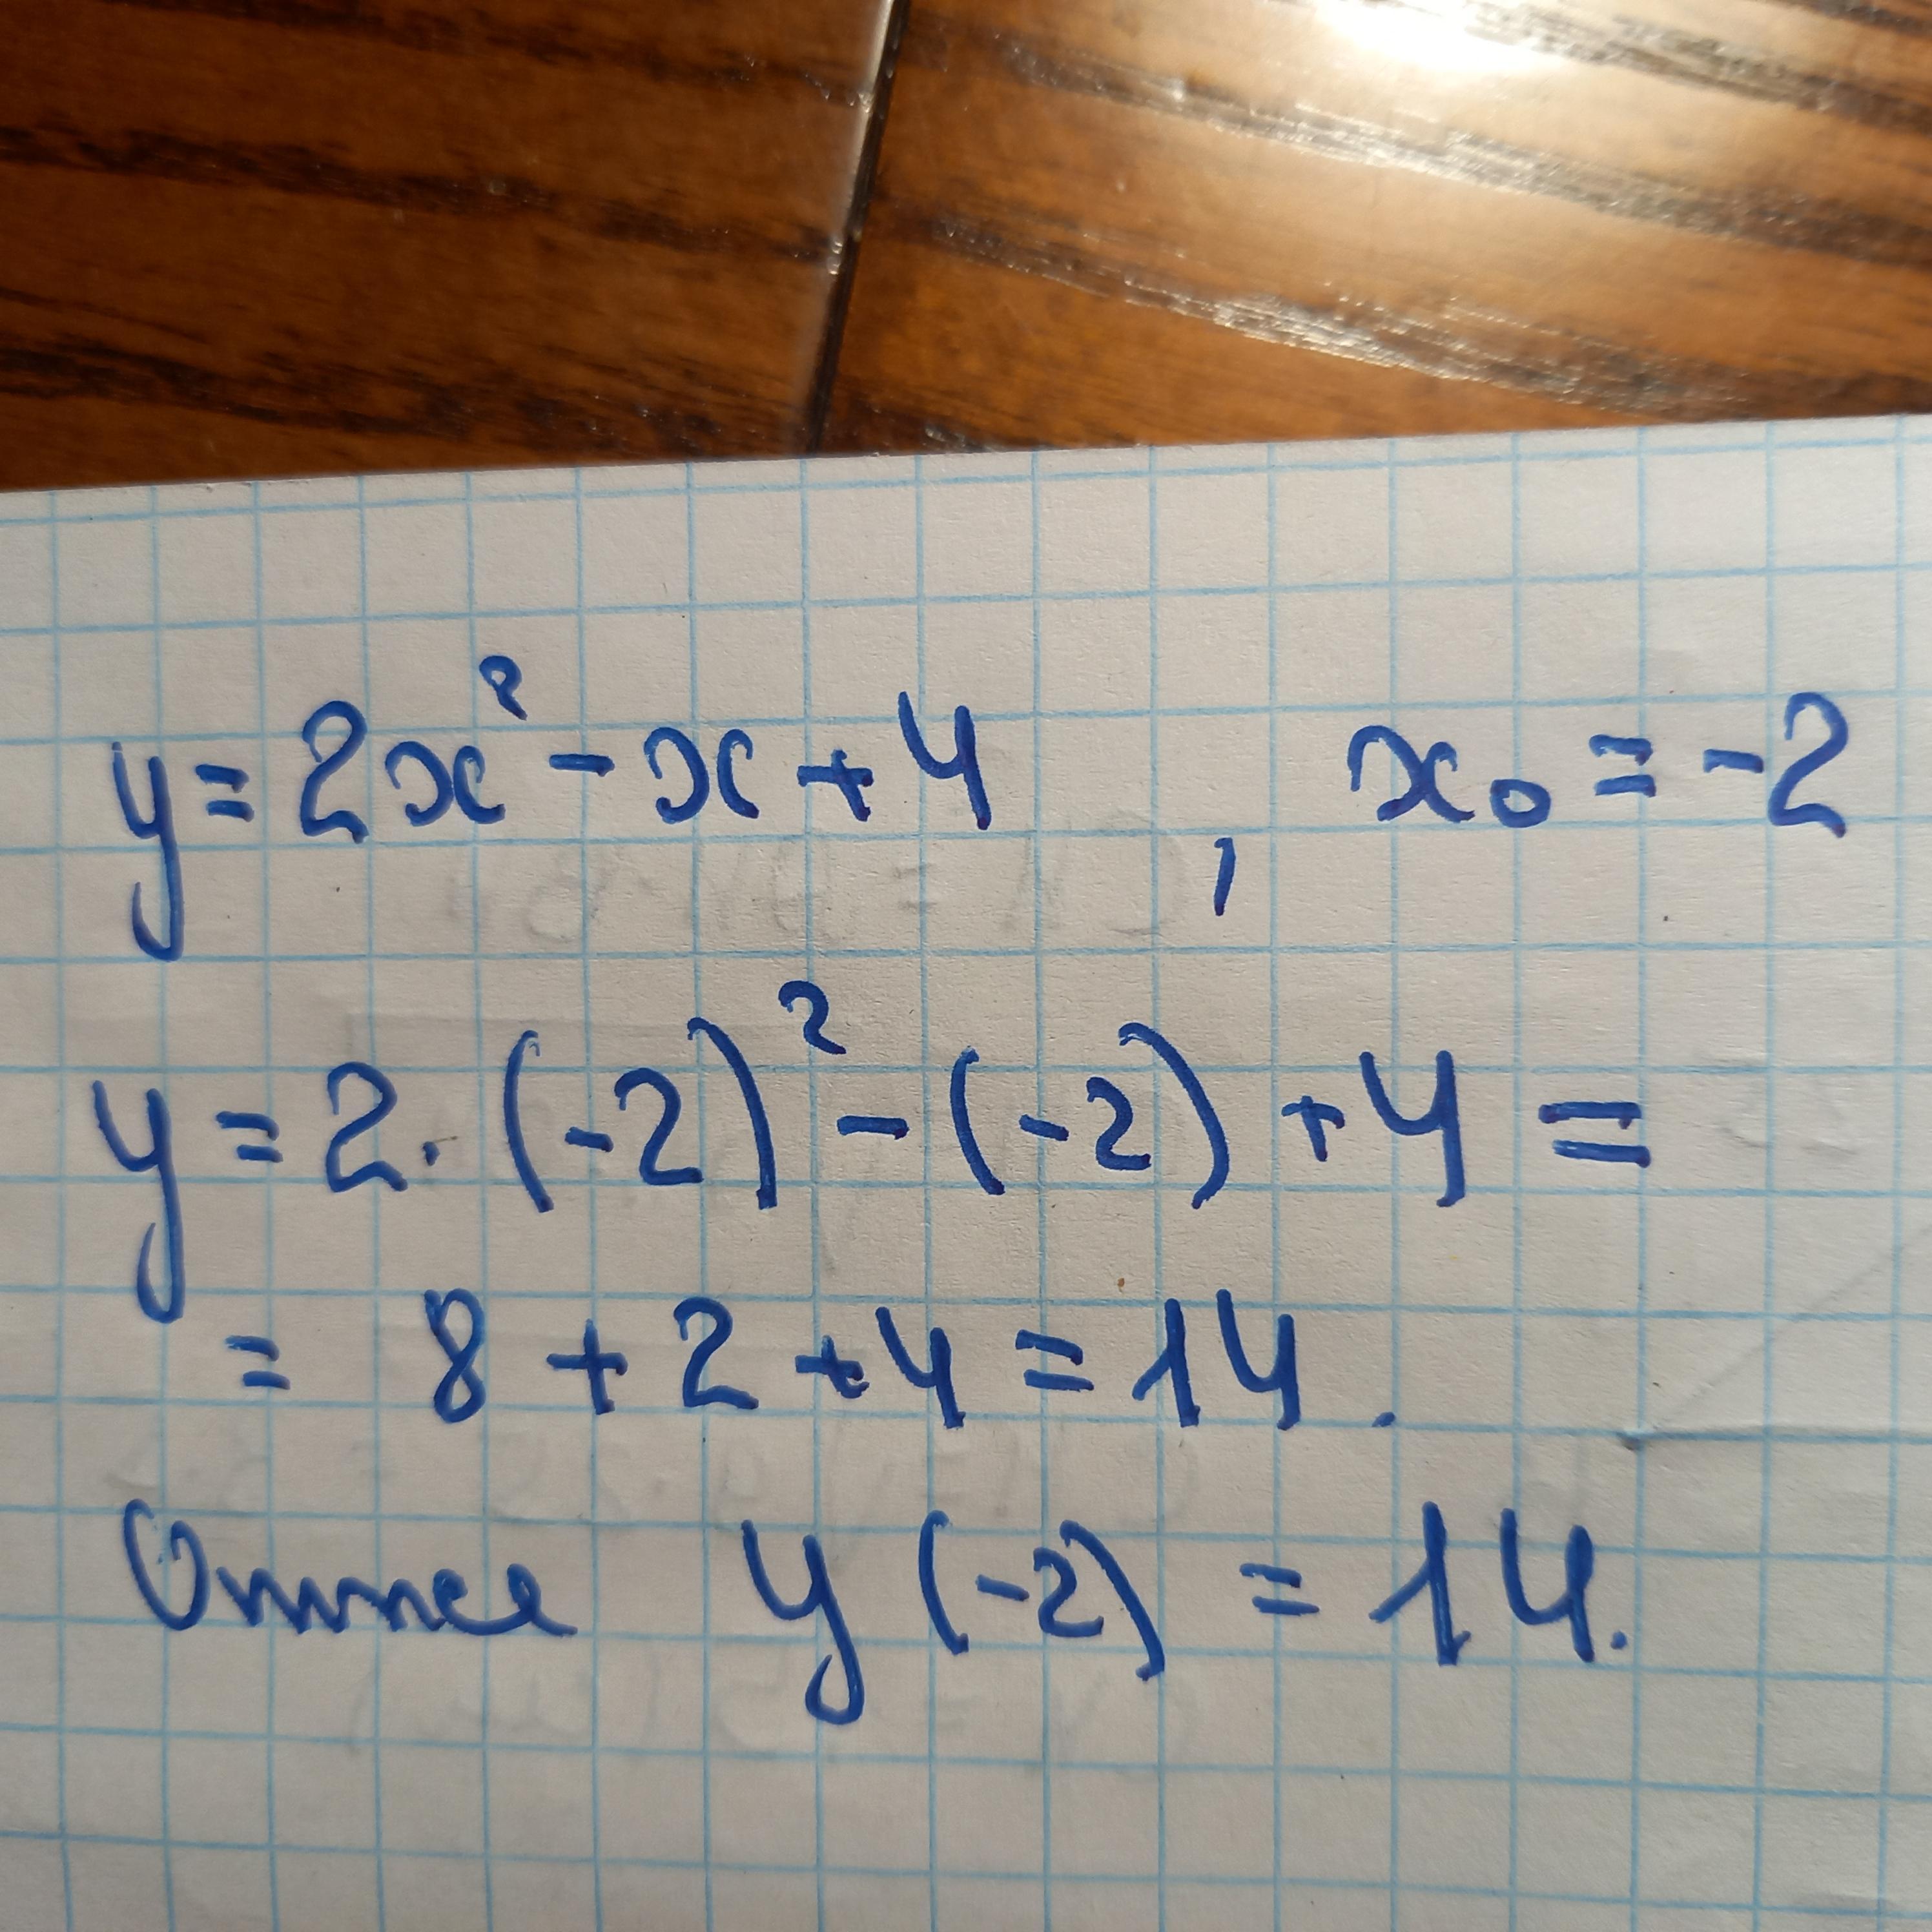 y = 2x² - x + 4 , x₀ = -2
y = 2 · (-2)² - (-2) + 4 =
= 8 + 2 + 4 = 14.
y (-2) = 14.